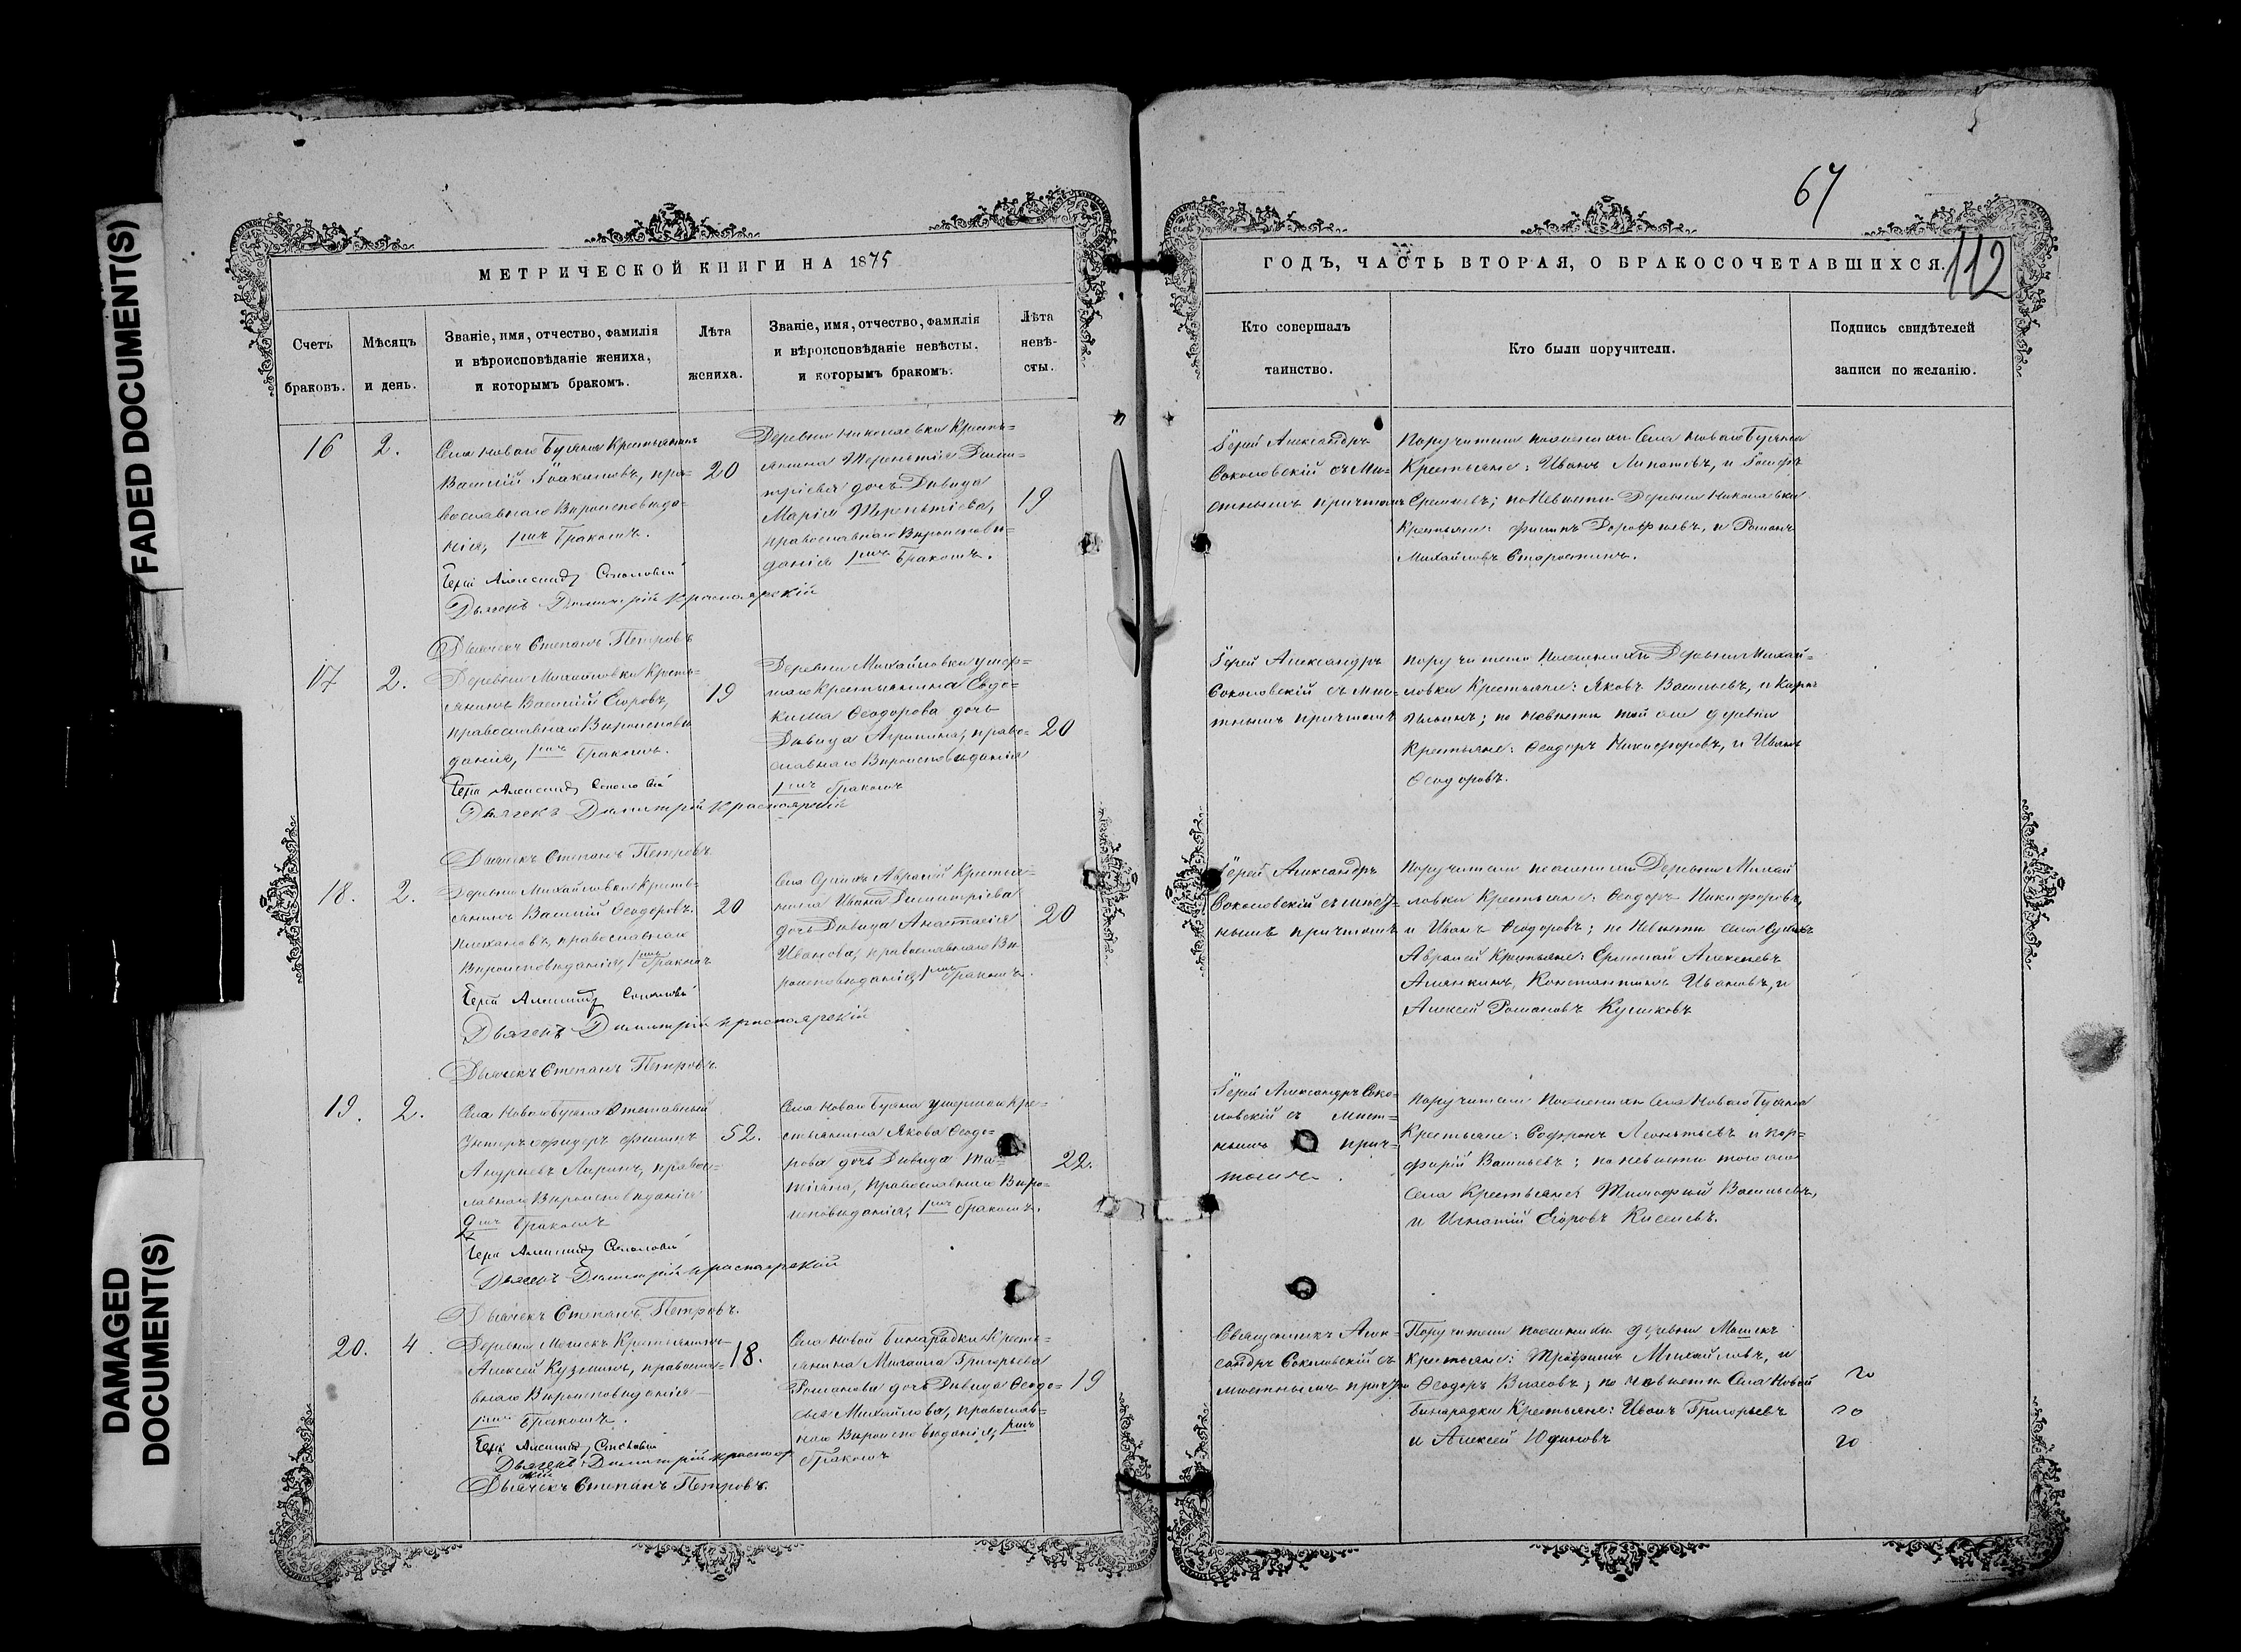 FADED DOCUMENT(S)
DAMAGED
DOCUMENT(S)
МЕТРИЧЕСКОЙ КНИГИ НА 1875
Счетъ
браковъ.
Мѣсяцъ
и день.
Званіе, имя, отчество, фамилія
и вѣроисповѣданіе жениха,
и которымъ бракомъ.
Лѣта
жениха.
Званіе, имя, отчество, фамилія
и вѣроисповѣданіе невѣсты.
и которымъ бракомъ.
Лѣта
невѣ-
сты.
16
2.
Села Новаго Буяна Крестьянинъ
Василій Іоакимовъ, пра-
вославнаго Вѣроисповѣда-
нія, 1мъ бракомъ.
Іерей Александръ Соколовскій
Дьячекъ Димитрій Красноярскій
Дьячекъ Степанъ Петровъ
20
Деревни Николаевки Кресть-
янина Терентія Дими-
тріева дочь Дѣвица
Марія Терентіева,
православнаго Вѣроисповѣ-
данія 1мъ бракомъ.
19
17
2.
Деревни Михайловки Кресть-
янинъ Василій Егоровъ,
православнаго Вѣроисповѣ
данія, 1мъ бракомъ.
Іерей Александръ Соколовскій
Дьячекъ Димитрій Красноярскій
Дьячекъ Степанъ Петровъ
19
Деревни Михайловки умер-
шаго Крестьянина Евдо-
кима Ѳеодорова дочь
Дѣвица Агрипина, право-
славнаго Вѣроисповѣданія
1мъ бракомъ
20
18.
2.
Деревни Михайловки Кресть-
янинъ Василій Ѳеодоровъ
православнаго
Вѣроисповѣданія, 1мъ бракомъ
Іерей Александръ Соколовскій
Дьячекъ Димитрій Красноярскій
Дьячекъ Степанъ Петровъ
20
Села Сухихъ Авралей Крестья-
нина Ивана Димитріева
дочь Дѣвица Анастасія
Иванова, православнаго Вѣ
роисповѣданія, 1мъ бракомъ.
20
19.
2.
Села Новаго Буяна Отставный
Унтеръ офицеръ Филипъ
Андреевъ Ларинъ, правос-
лавнаго Вѣроисповѣданія
2мъ бракомъ
Іерей Александръ Соколовскій
Дьячекъ Димитрій Красноярскій
Дьячекъ Степанъ Петровъ.
52.
Села Новаго Буяна умершаго Кре-
стьянина Якова Ѳеодо-
рова дочь Дѣвица Та-
тіана, Православнаго Вѣро-
исповѣданія, 1мъ бракомъ.
22.
20.
4.
Деревни Мошекъ Крестьянинъ
Алексей Кузминъ, правосла-
внаго Вѣроисповѣданія
1мъ бракомъ.
Іерей Александръ Соколовскій
Дьячекъ Димитрій Краснояр
скій
Дьячекъ Степанъ Петровъ.
18.
Села Новой Бинарадки Кресть-
янина Михаила Григорьева
Романова дочь Дѣвица Ѳеодо-
сья Михайлова, православ-
наго Вѣроисповѣданія, 1мъ
бракомъ
19
67
112
ГОДЪ, ЧАСТЬ ВТОРАЯ, О БРАКОСОЧЕТАВШИХСЯ.
Кто совершалъ
таинство.
Кто были поручители.
Подпись свидѣтелей
записи по желанію.
Іерей Александръ
Соколовскій съ Мѣ-
стнымъ причтомъ
Поручители по женихѣ Села Новаго Буяна
Крестьяне: Иванъ Липатевъ, и Іосифъ
Сергѣевъ; по Невѣсти Деревни Николаевки
Крестьяне: Филипъ Дорофѣевъ, и Романъ
Михайловъ Старостинъ.
Іерей Александръ
Соколовскій съ мѣс-
тнымъ причтомъ
поручители по женихѣ Деревни Михай-
ловки Крестьяне: Яковъ Васильевъ, и Карпъ
Ильинъ; по Невѣсти той же деревни
Крестьяне: Ѳеодоръ Никифоровъ, и Иванъ
Ѳеодоровъ.
Іерей Александръ
Соколовскій съ мѣст-
нымъ причтомъ
Поручители по женихѣ Деревни Михай
ловки Крестьяне: Ѳеодоръ Никифоровъ,
и Иванъ Ѳеодоровъ; по Невѣсти села Сухихъ
Авралей Крестьяне: Ермолай Алексѣевъ
Алянкинъ, Константинъ Ивановъ, и
Алексей Романовъ Куликовъ
Іерей Александръ Соко-
ловскій съ мѣст-
нымъ прич-
томъ.
Поручители по женихѣ Села Новаго Буяна
Крестьяне: Софронъ Леонтьевъ и Пор-
фирій Васильевъ; по невѣсти того же
Села Крестьяне: Тимофѣй Васильевъ,
и Игнатій Егоровъ Киселевъ.
Священникъ Алек-
сандръ Соколовскій съ
мѣстнымъ причто
Поручители по женихѣ деревни Мошекъ
Крестьяне: Трофимъ Михайловъ, и
Ѳеодоръ Власовъ; по Невѣсти Села Новой
Бинарадки Крестьяне: Иванъ Григорьевъ
и Алексей Юдиновъ